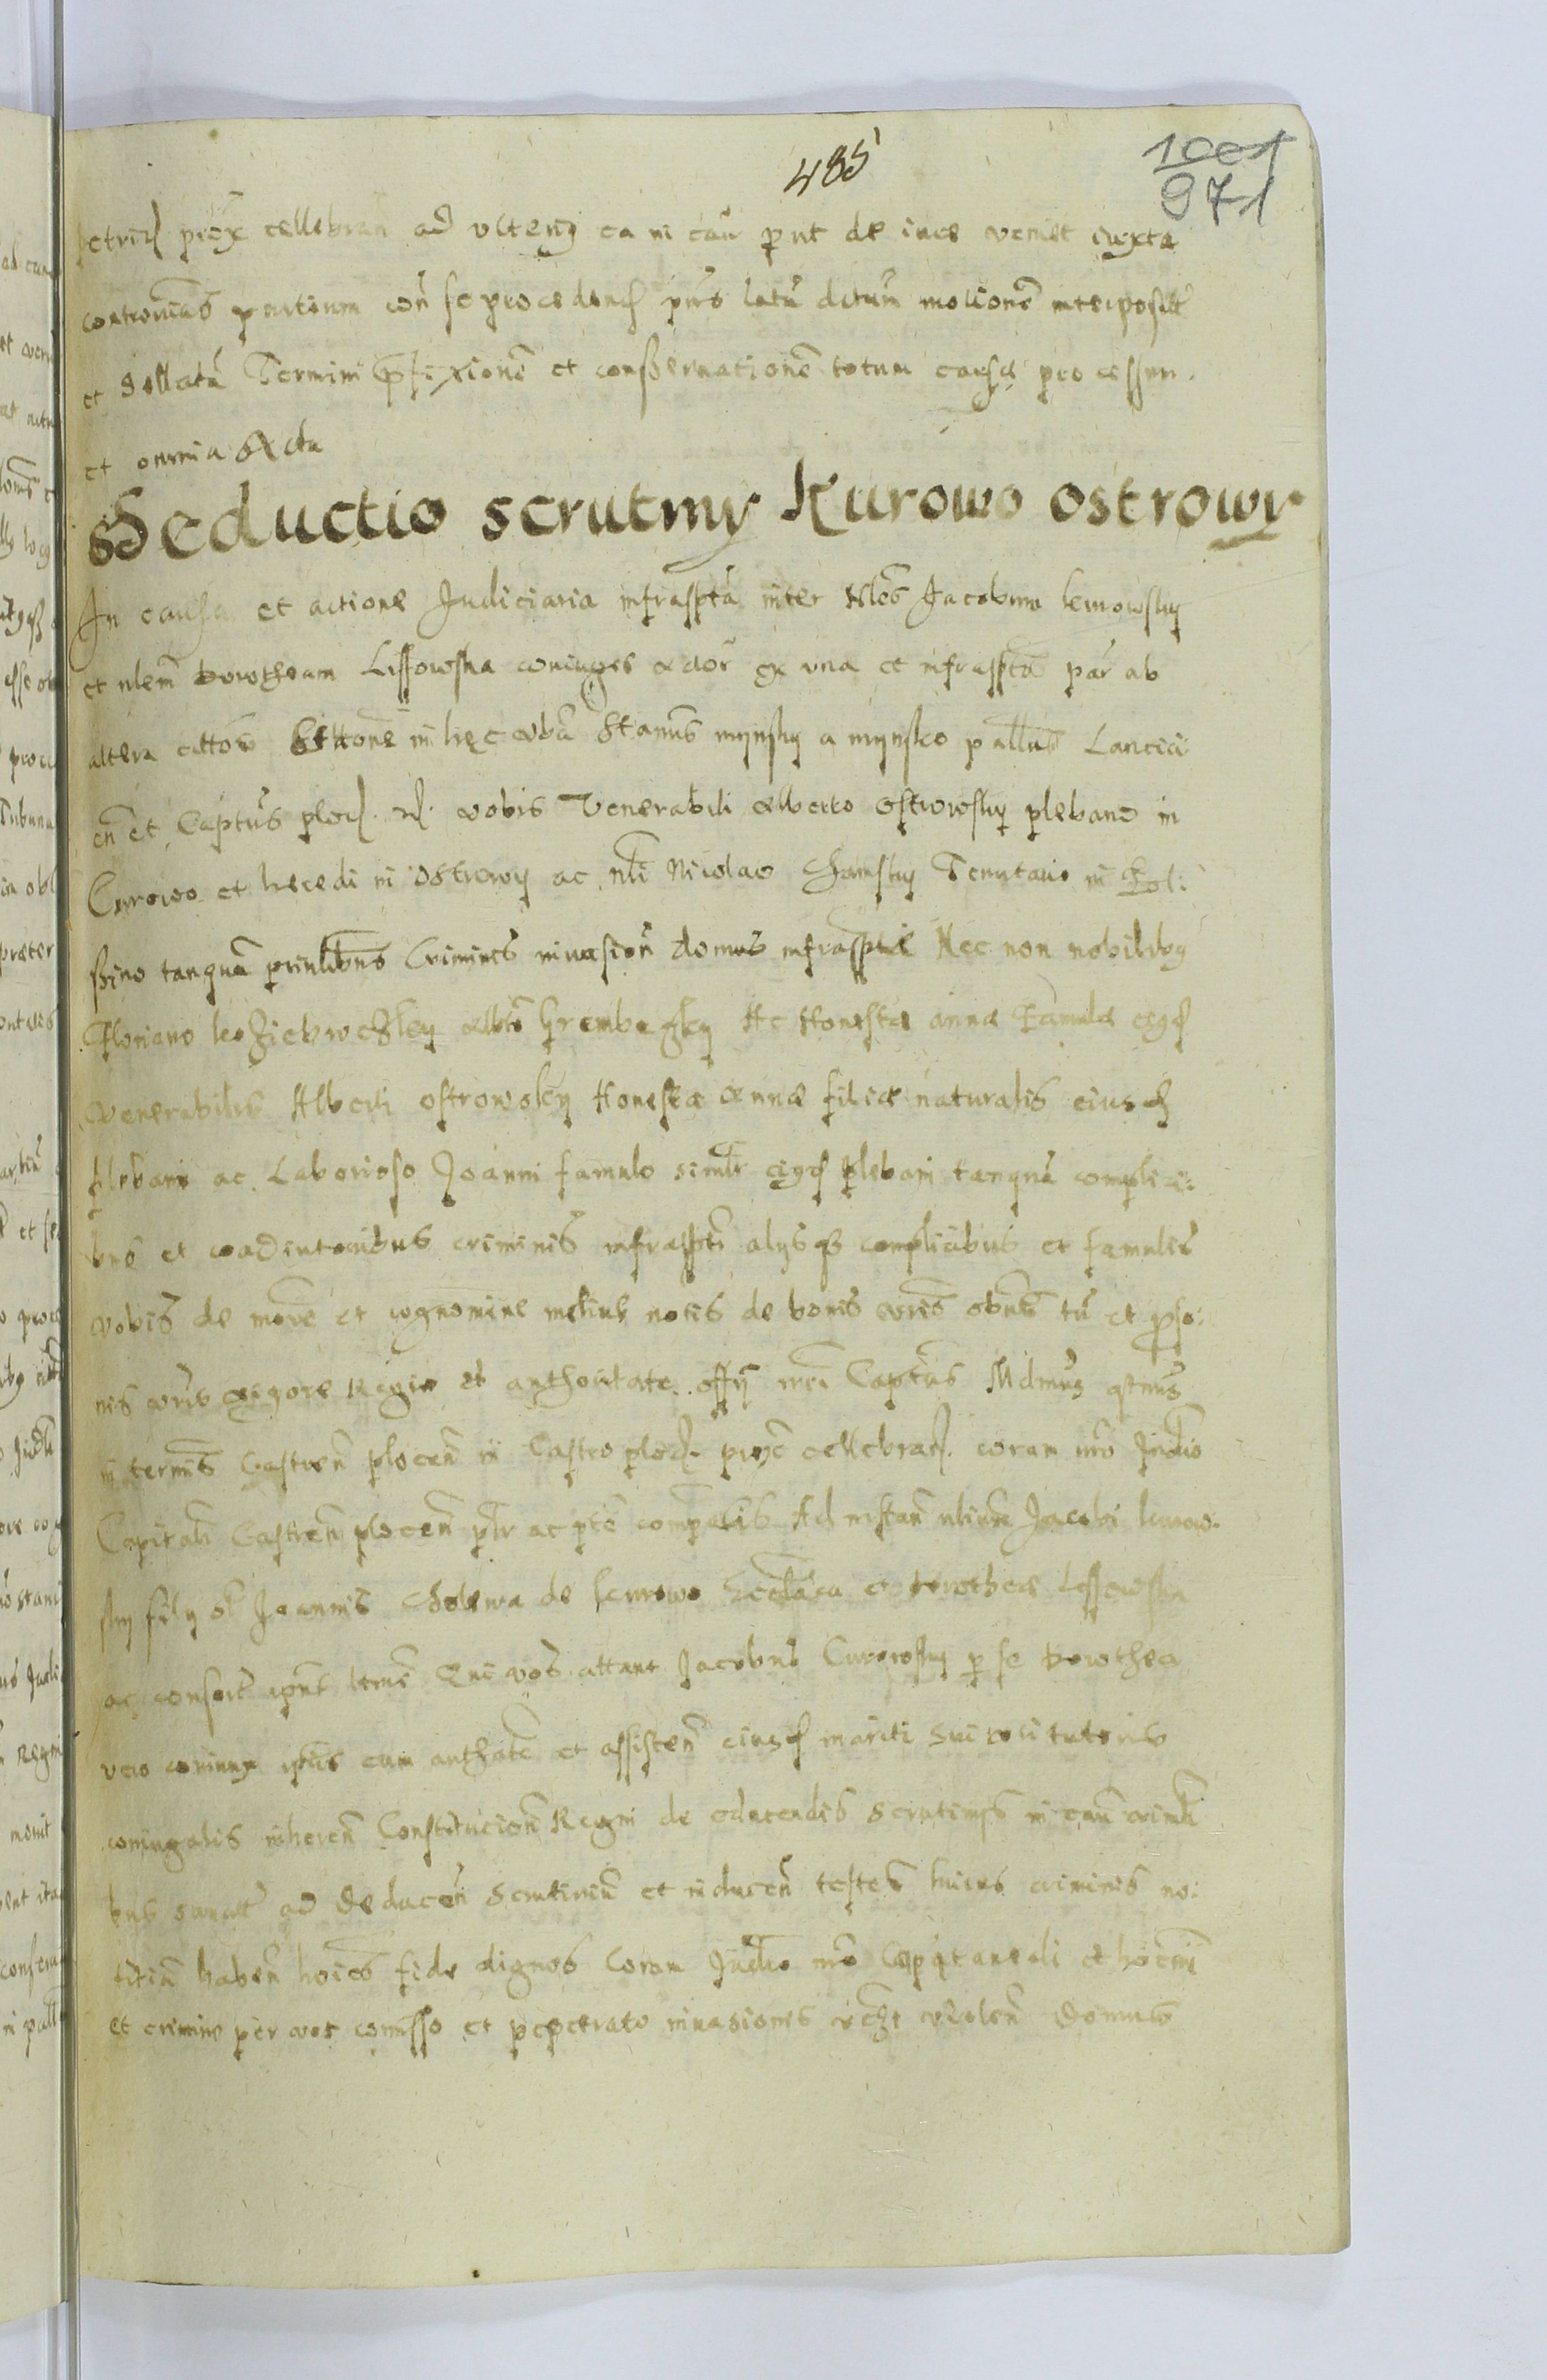 485
1001
971
petricõ prox cellebran ad ulterius ea in cau prout de iure veniet iuxta
controversias partium con se procedend pns latu ditum motione interposit
et dollatã Termini prefixione et conservatione totum causæ processum
et omnia Acta
Deductio scrutiny Kurowo ostrowy
In causa et actione Judiciaria infrascpta inter Nles Jacobum kurowsky
et nlem Dorotheam Lissowska coniuges actor ex una et infrascpta par ab
altera citatos Cittone in hec verba Stanus mynsky a mynsko pallus Lancici
en et Captus plocen vobis Venerabili alberto ostrowsky plebano in
Curowo et heredi in Ostrowy ac nli Nicolao Chamsky Tenutario in Goli:
ssino tanquã prinlibus Criminis invasion domus infrascpte Nec non nobilibus
Floriano alberto Ac Honeste anna Famula eiusd
venerabilis Alberti ostrowsky Honesta anna filia naturalis eiusd
plebani ac Laborioso Joanni famulo similr eiusd plebani tanquã complici:
bus et coadiutoribus criminis infrascpti alysq complicibus et famulis
vobis de nomine et cognomine melius notis de bonis vris obnlr tu et perso:
nis vris vigore Regio et authoritate offy mei Captus Mdmus qtnus
in terminis Castren plocen in Castro plocen prox cellebrad coram nro Judio
Capitali Castren plocen plr ac ptè compatis Ad instan nlium Jacobi kurow:
sky fily ol Joannis Cholewa de kurowo et dorothea Lissowska
ac consort ipius ltime Qui vos attant Jacobus Curowsky p se Dorothea
vero coniunx ipius cum authate et assisten eiusd mariti sui uti tutoris
coniugalis inheren Constitucion Regni de educendis scrutinys in cau crimli
bus sancit ad deducen scrutiniu et inducen testes huius criminis no:
titiam haben hoies fide dignos Coram Judio nro Capitaneali et hocmi
et crimine per vos comisso et perpetrato invasionis violen domus